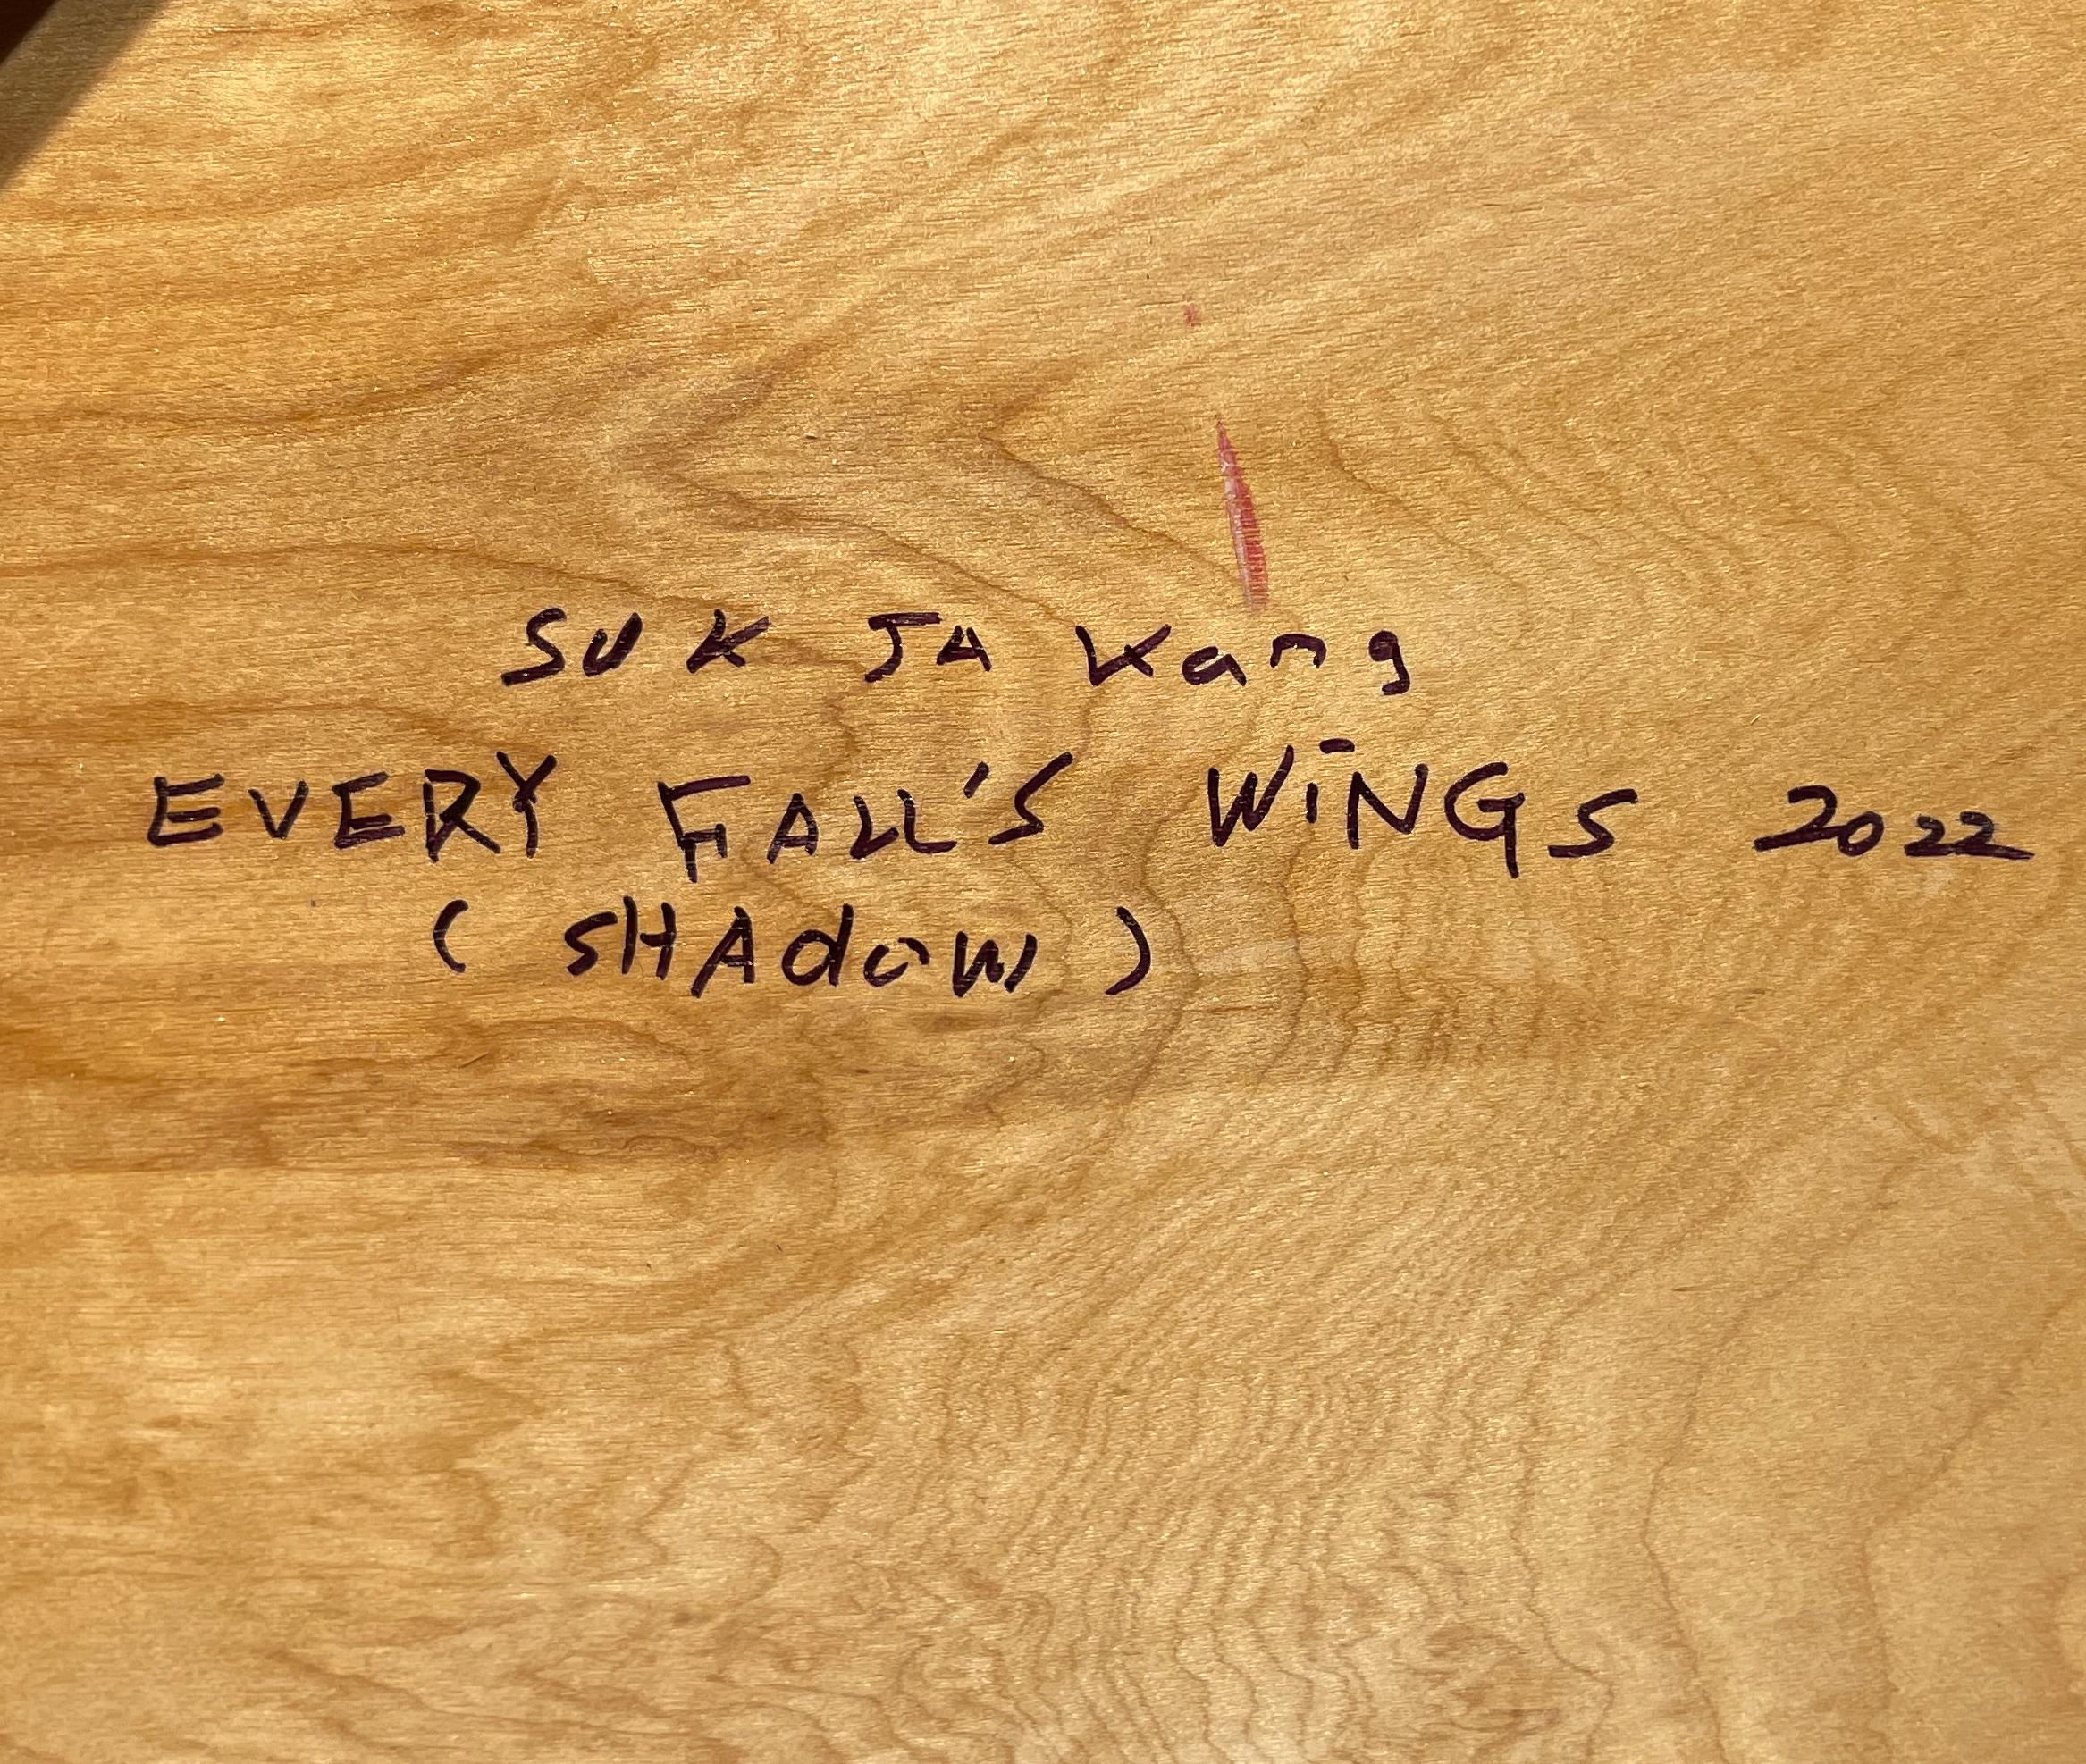 SUK JA Kang
EVERY FALL'S WiNGS 2022
( SHAdow )